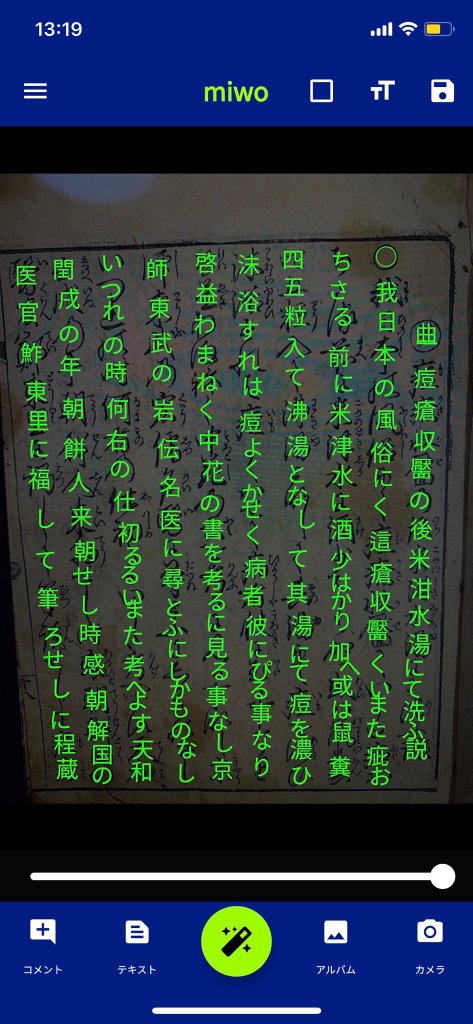 13:19
miwo
曲 痘瘡収靨の後米泔水湯にて洗ふ説
〇我日本の風俗にく這瘡収靨くいまた疵お
ちさる前に米津水に酒少はかり加へ或は鼠糞
四五粒入て沸湯となして其湯にて痘を濃ひ
沫浴すれは痘よくかせく病者彼にぴる事なり
啓益わまねく中花の書を考るに見る事なし京
師東武の岩伝名医に尋とふにしかものなし
いつれの時何右の仕初るるいまた考へよす天和
閏戌の年朝餅人来朝せし時感朝解国の
医官鮓東里に福して筆ろせしに程蔵
コメント
テキスト
アルバム
カメラ